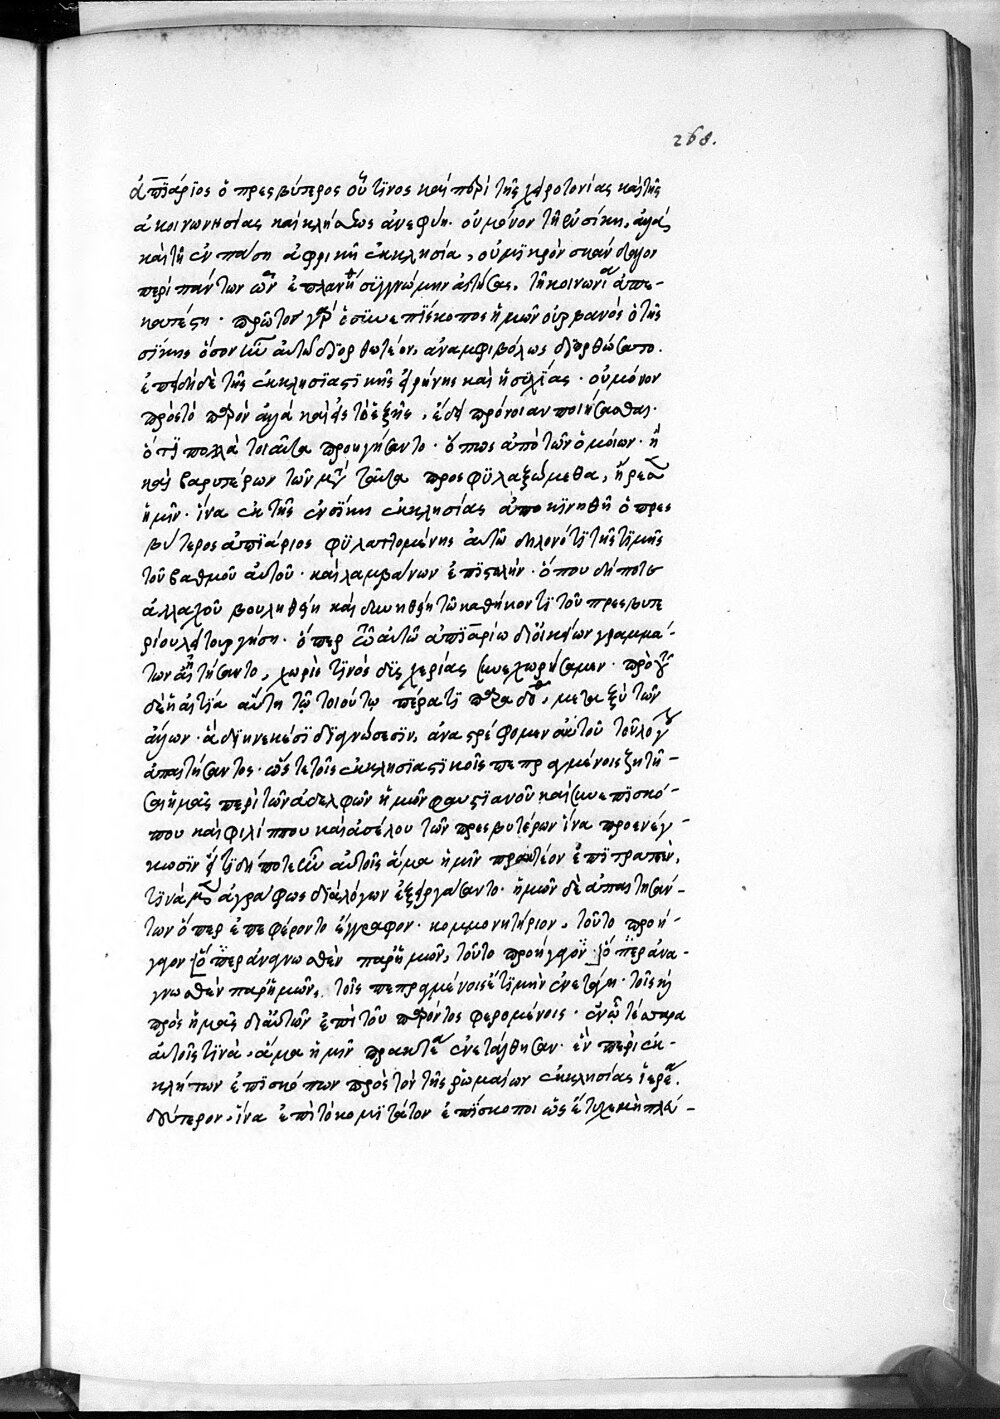 268.
ἀπιάριος ὁ πρεσβύτερος οὗ τινος καὶ περὶ τῆς χειροτονίας καὶ τῆς
ἀκοινωνησίας καὶ κλήσεως ἀνεφύη. οὐ μόνον τῇ ἐν σίκη, ἀλλὰ
καὶ τῇ ἐν πάσῃ ἀφρικῇ ἐκκλησία, οὐ μικρὸν σκάνδαλον
περὶ πάντων ὧν ἐπλανήθη συγγνώμην αἰτήσας, τῇ κοινωνίᾳ ἀπε-
κατέστη. πρῶτον γὰρ ὁ συνεπίσκοπος ἡμῶν οὐρβανὸς ὁ τῆς
σίκης ὅσον ἦν αὐτῷ διορθωτέον, ἀναμφιβόλως διορθώσατο.
ἐπειδὴ δὲ τῆς ἐκκλησιαστικῆς εἰρήνης καὶ ἡσυχίας. οὐ μόνον
πρὸς τὸ παρὸν ἀλλὰ καὶ εἰς τὸ ἑξῆς, ἔδει πρόνοιαν ποιήσασθαι.
ὅτι πολλὰ τοιαῦτα προηγήσαντο. ὅπως ἀπὸ τῶν ὁμοίων. ἢ
καὶ βαρυτέρων τῶν μετὰ ταῦτα προσφυλαξώμεθα, ἤρεσεν
ἡμῖν. ἵνα ἐκ τῆς ἐν σίκη ἐκκλησίας ἀποκινηθῇ ὁ πρεσ
βύτερος ἀπιάριος φυλαττομένης αὐτῷ δηλονότι τῆς τιμῆς
τοῦ βαθμοῦ αὐτοῦ. καὶ λαμβάνων ἐπιστολήν. ὅπου δήποτε
ἀλλαχοῦ βουληθείη καὶ δυνηθείη τῷ καθήκοντι τοῦ πρεσβυτε
ρίου λειτουργήση. ὅπερ αὐτῷ ἀπιαρίω δι' οἰκείων γραμμά-
των αἰτήσαντο, χωρίς τινὸς δυσχερίας συνεχωρήσαμεν. πρὸ τοῦ
δὲ ἡ αἰτία αὕτη τῷ τοιούτῳ πέρατι παραδοθῇ, μεταξὺ τῶν
ἄλλων. ἃ διηνεκέσι διαγνώσεσιν, ἀναστρέφομεν αὐτοῦ τοῦ λόγου
ἀπαιτήσαντος. ὥστε τοῖς ἐκκλησιαστικοῖς πεπραγμένοις ζητῆ-
σαι ἡμᾶς περὶ τῶν ἀδελφῶν ἡμῶν φαυστιανοῦ καὶ συνεπισκό-
που καὶ φιλίππου καὶ ἀσέλου τῶν πρεσβυτέρων ἵνα προενέγ-
κωσιν εἴ τι δήποτε ἦν αὐτοῖς ἅμα ἡμῖν πρακτέον ἐπιτραπέν,
τινὰ μὲν ἀγράφως διαλόγων ἐξειργάσαντο. ἡμῶν δὲ ἀπαιτησάν-
των ὅπερ ἐπεφέροντο ἔγγραφον. κομμονητήριον. τοῦτο προή-
γαγον. [ὅπερ ἀναγνωσθὲν παρ' ἡμῶν, τοῦτο προήγαγον.] ὅπερ ἀνα-
γνωσθὲν παρ' ἡμῶν, τοῖς πεπραγμένοις ἔτι μὴν ἐνετάγη. τοῖς καὶ
πρὸς ἡμᾶς δι' αὐτῶν ἐπὶ τοῦ παρόντος φερομένοις. ἐν ᾧ τέσσαρα
αὐτοῖς τινὰ, ἅμα ἡμῖν πρακτέα ἐνετάχθησαν. ἓν περὶ ἐκ-
κλήτων ἐπισκόπων πρὸς τὸν τῆς ῥωμαίων ἐκκλησίας ἱερέα.
δεύτερον. ἵνα ἐπὶ τὸ κομιτάτον ἐπίσκοποι ὡς ἔτυχε μὴ πλέ-